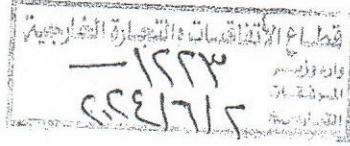 قطاع الاتفاقيات والتجارة الخارجية
١٢٢٣
وارد وزير
٢٠٢٤/٦/٢